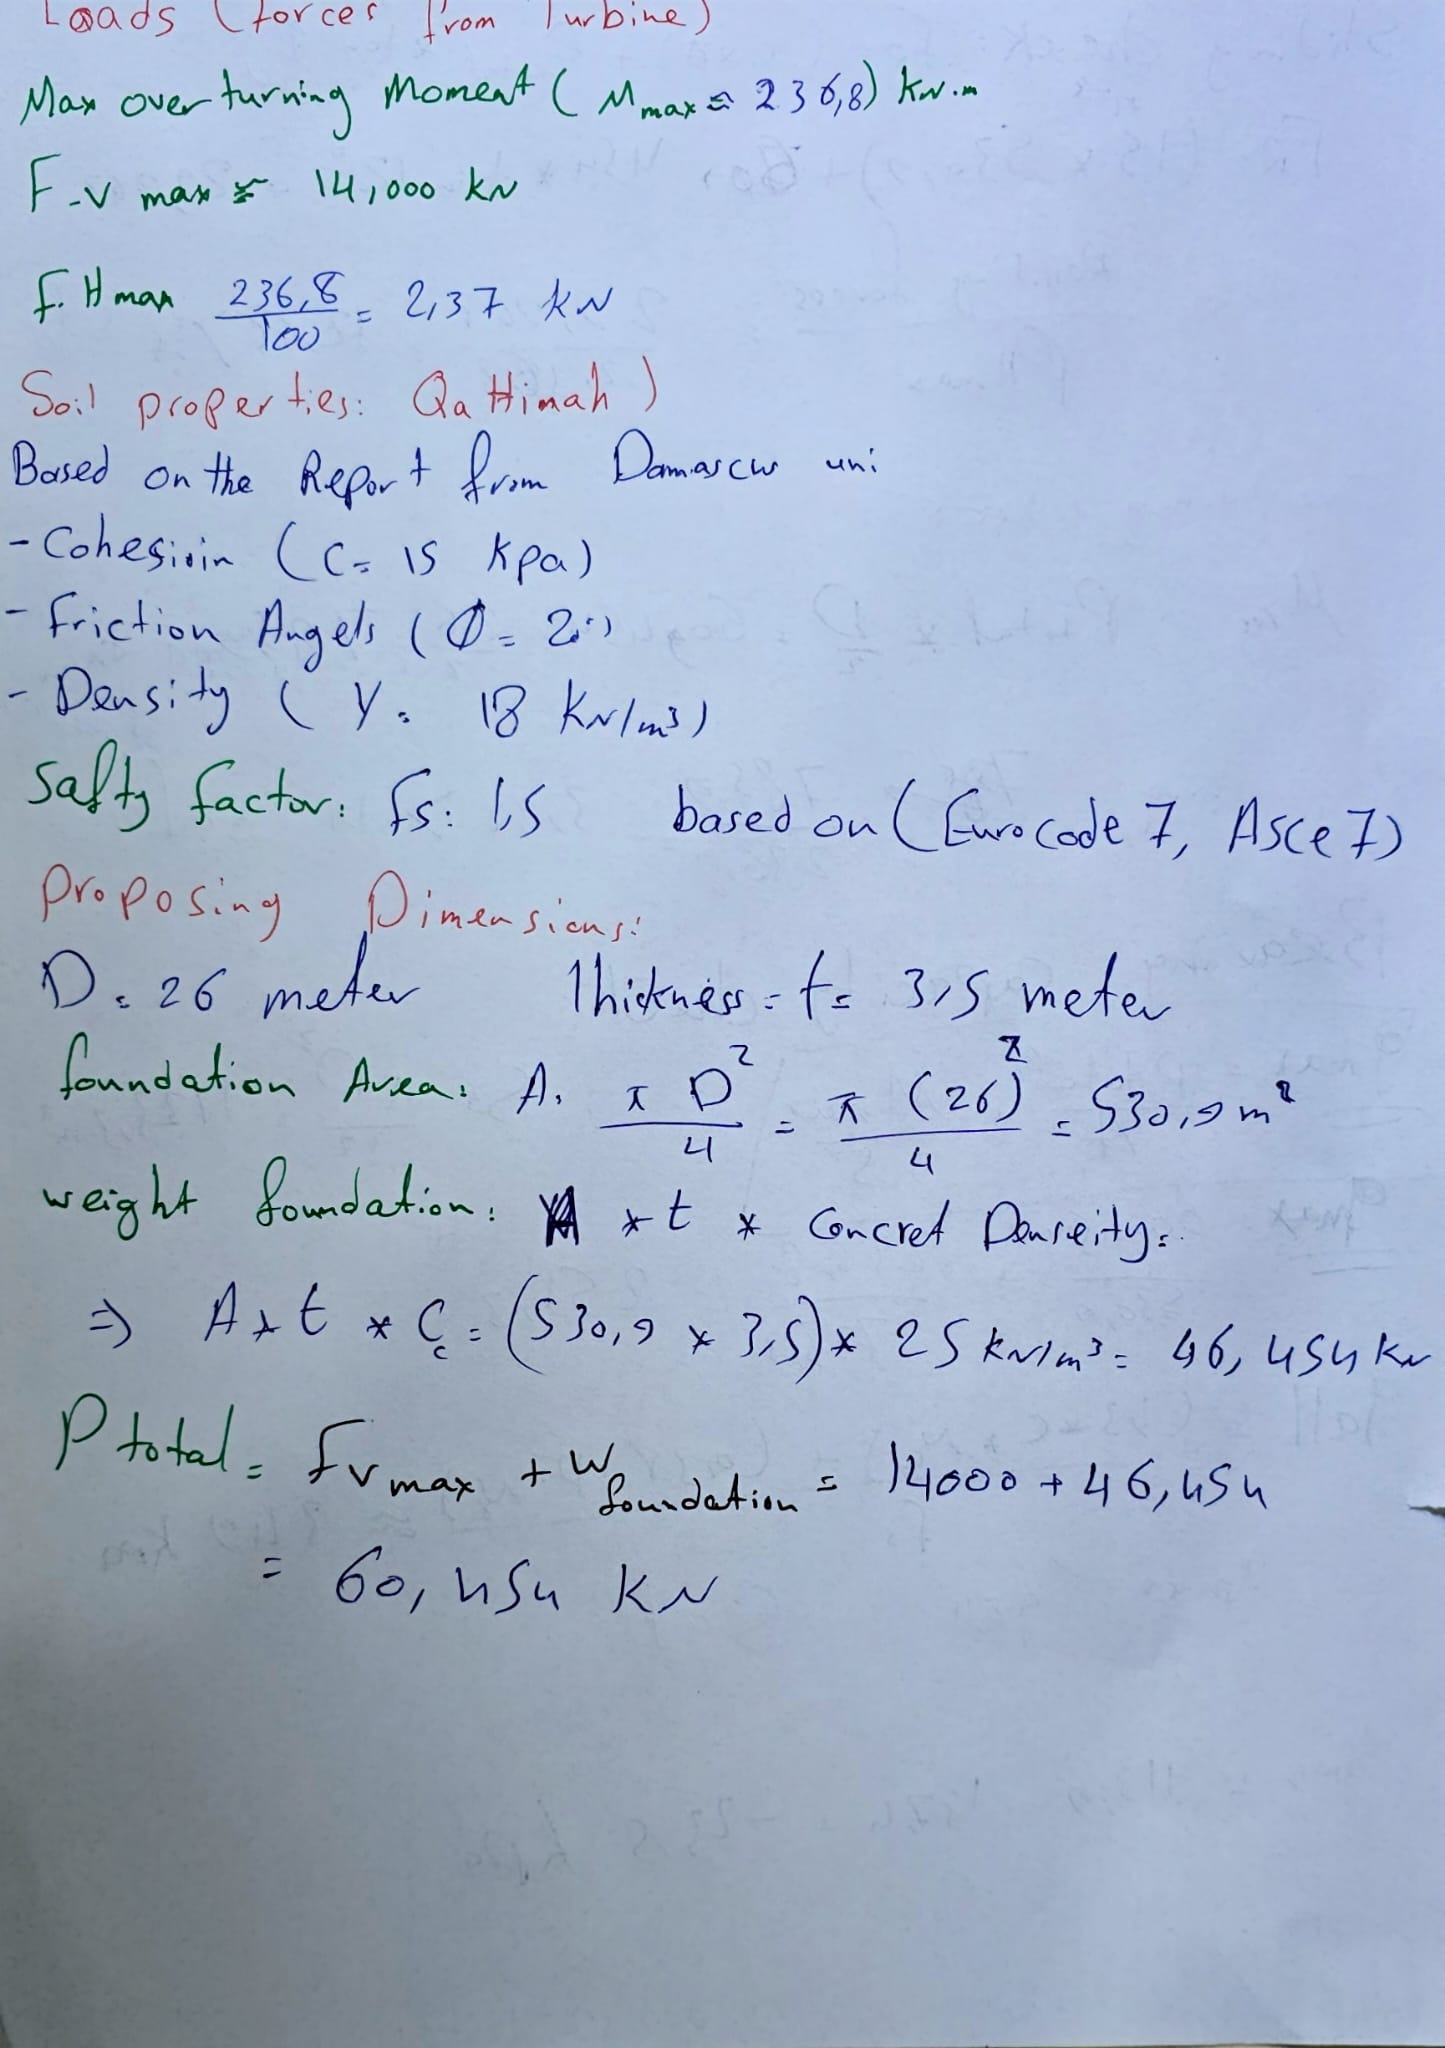 Loads (forces from Turbine)
Max over turning Moment ( M max = 236,8) kN.m
F-v max ≈ 14,000 kN
f. H max 236,8 / 100 = 2,37 kN
Soil properties: Qattimah )
Based on the Report from Damascus uni
- Cohesioin ( C= 15 kpa)
- friction Angels ( Ø= 20°)
- Density ( γ= 18 kN/m³)
Safty factor: fs: 1,5 based on ( Eurocode 7, Asce 7)
Proposing Dimensions:
D = 26 meter Thickness = t = 3,5 meter
foundation Area: A = π D² / 4 = π (26)² / 4 = 530,9 m²
weight foundation: A * t * Concret Denseity =
⇒ A * t * Cc = (530,9 * 3,5) * 25 kN/m³ = 46,454 kN
P total = fv max + W foundation = 14000 + 46,454
= 60,454 kN